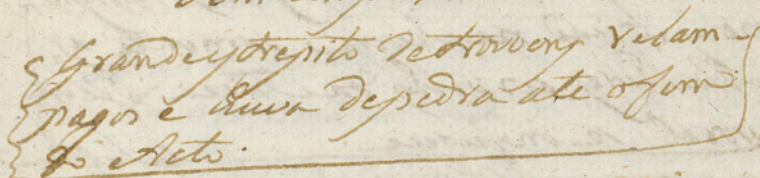 Grande estrepito de trovoens relam-
pagos e chuva de pedra até o fim
do Acto.